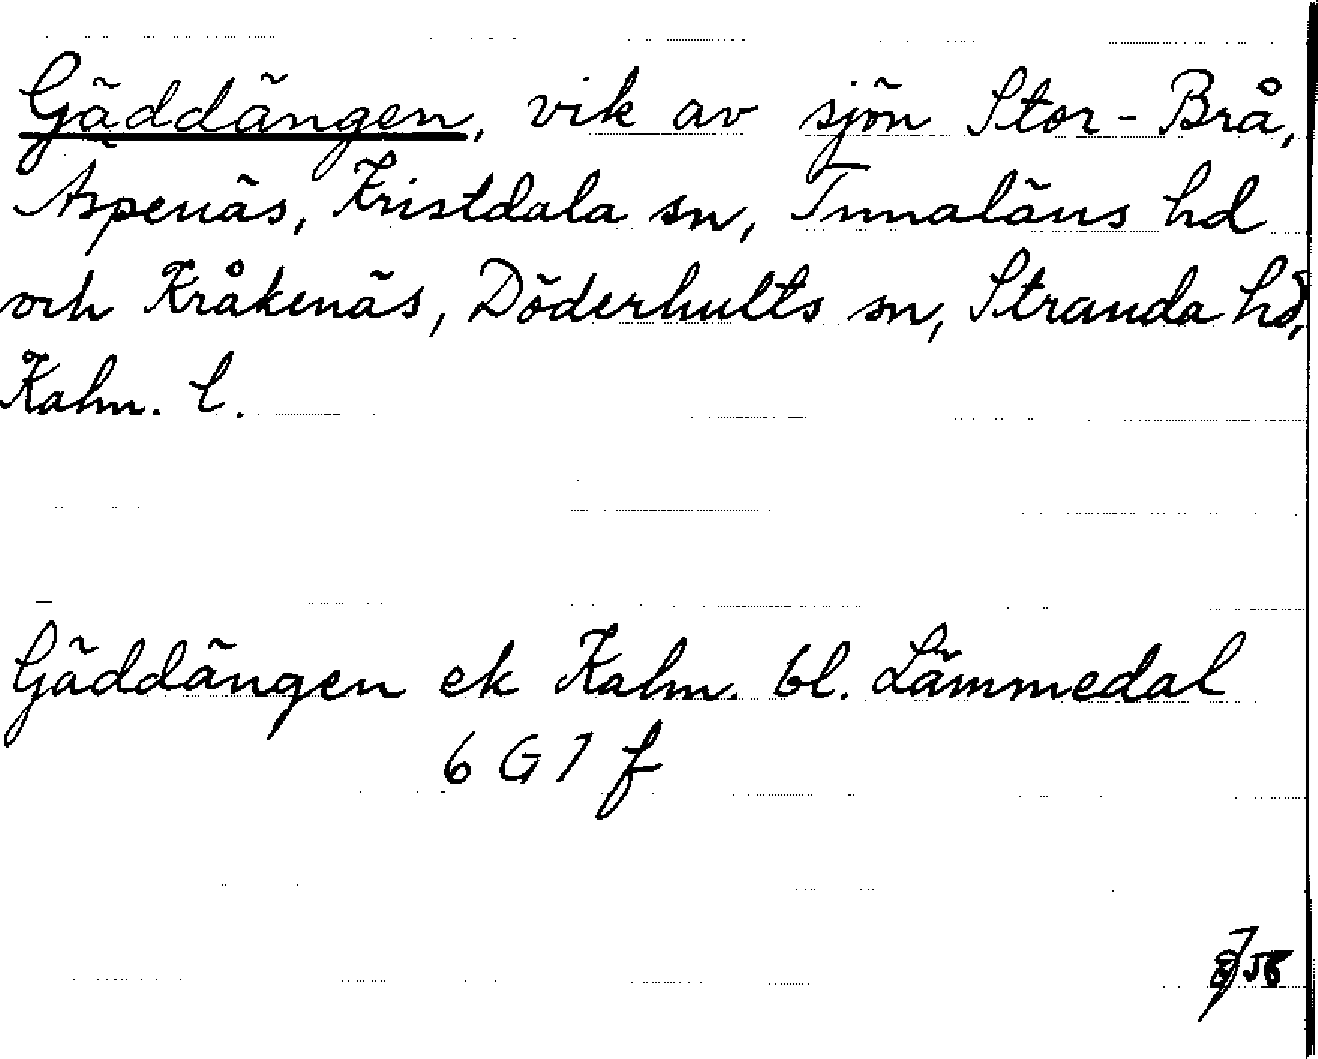 Gäddängen, vik av sjön Stor-Brå,
Aspenäs, Kristdala sn, Tunaläns hd
och Kråkenäs, Döderhults sn, Stranda hd,
Kalm. l.
Gäddängen ek Kalm. bl. Lämmedal
6 G 7 f